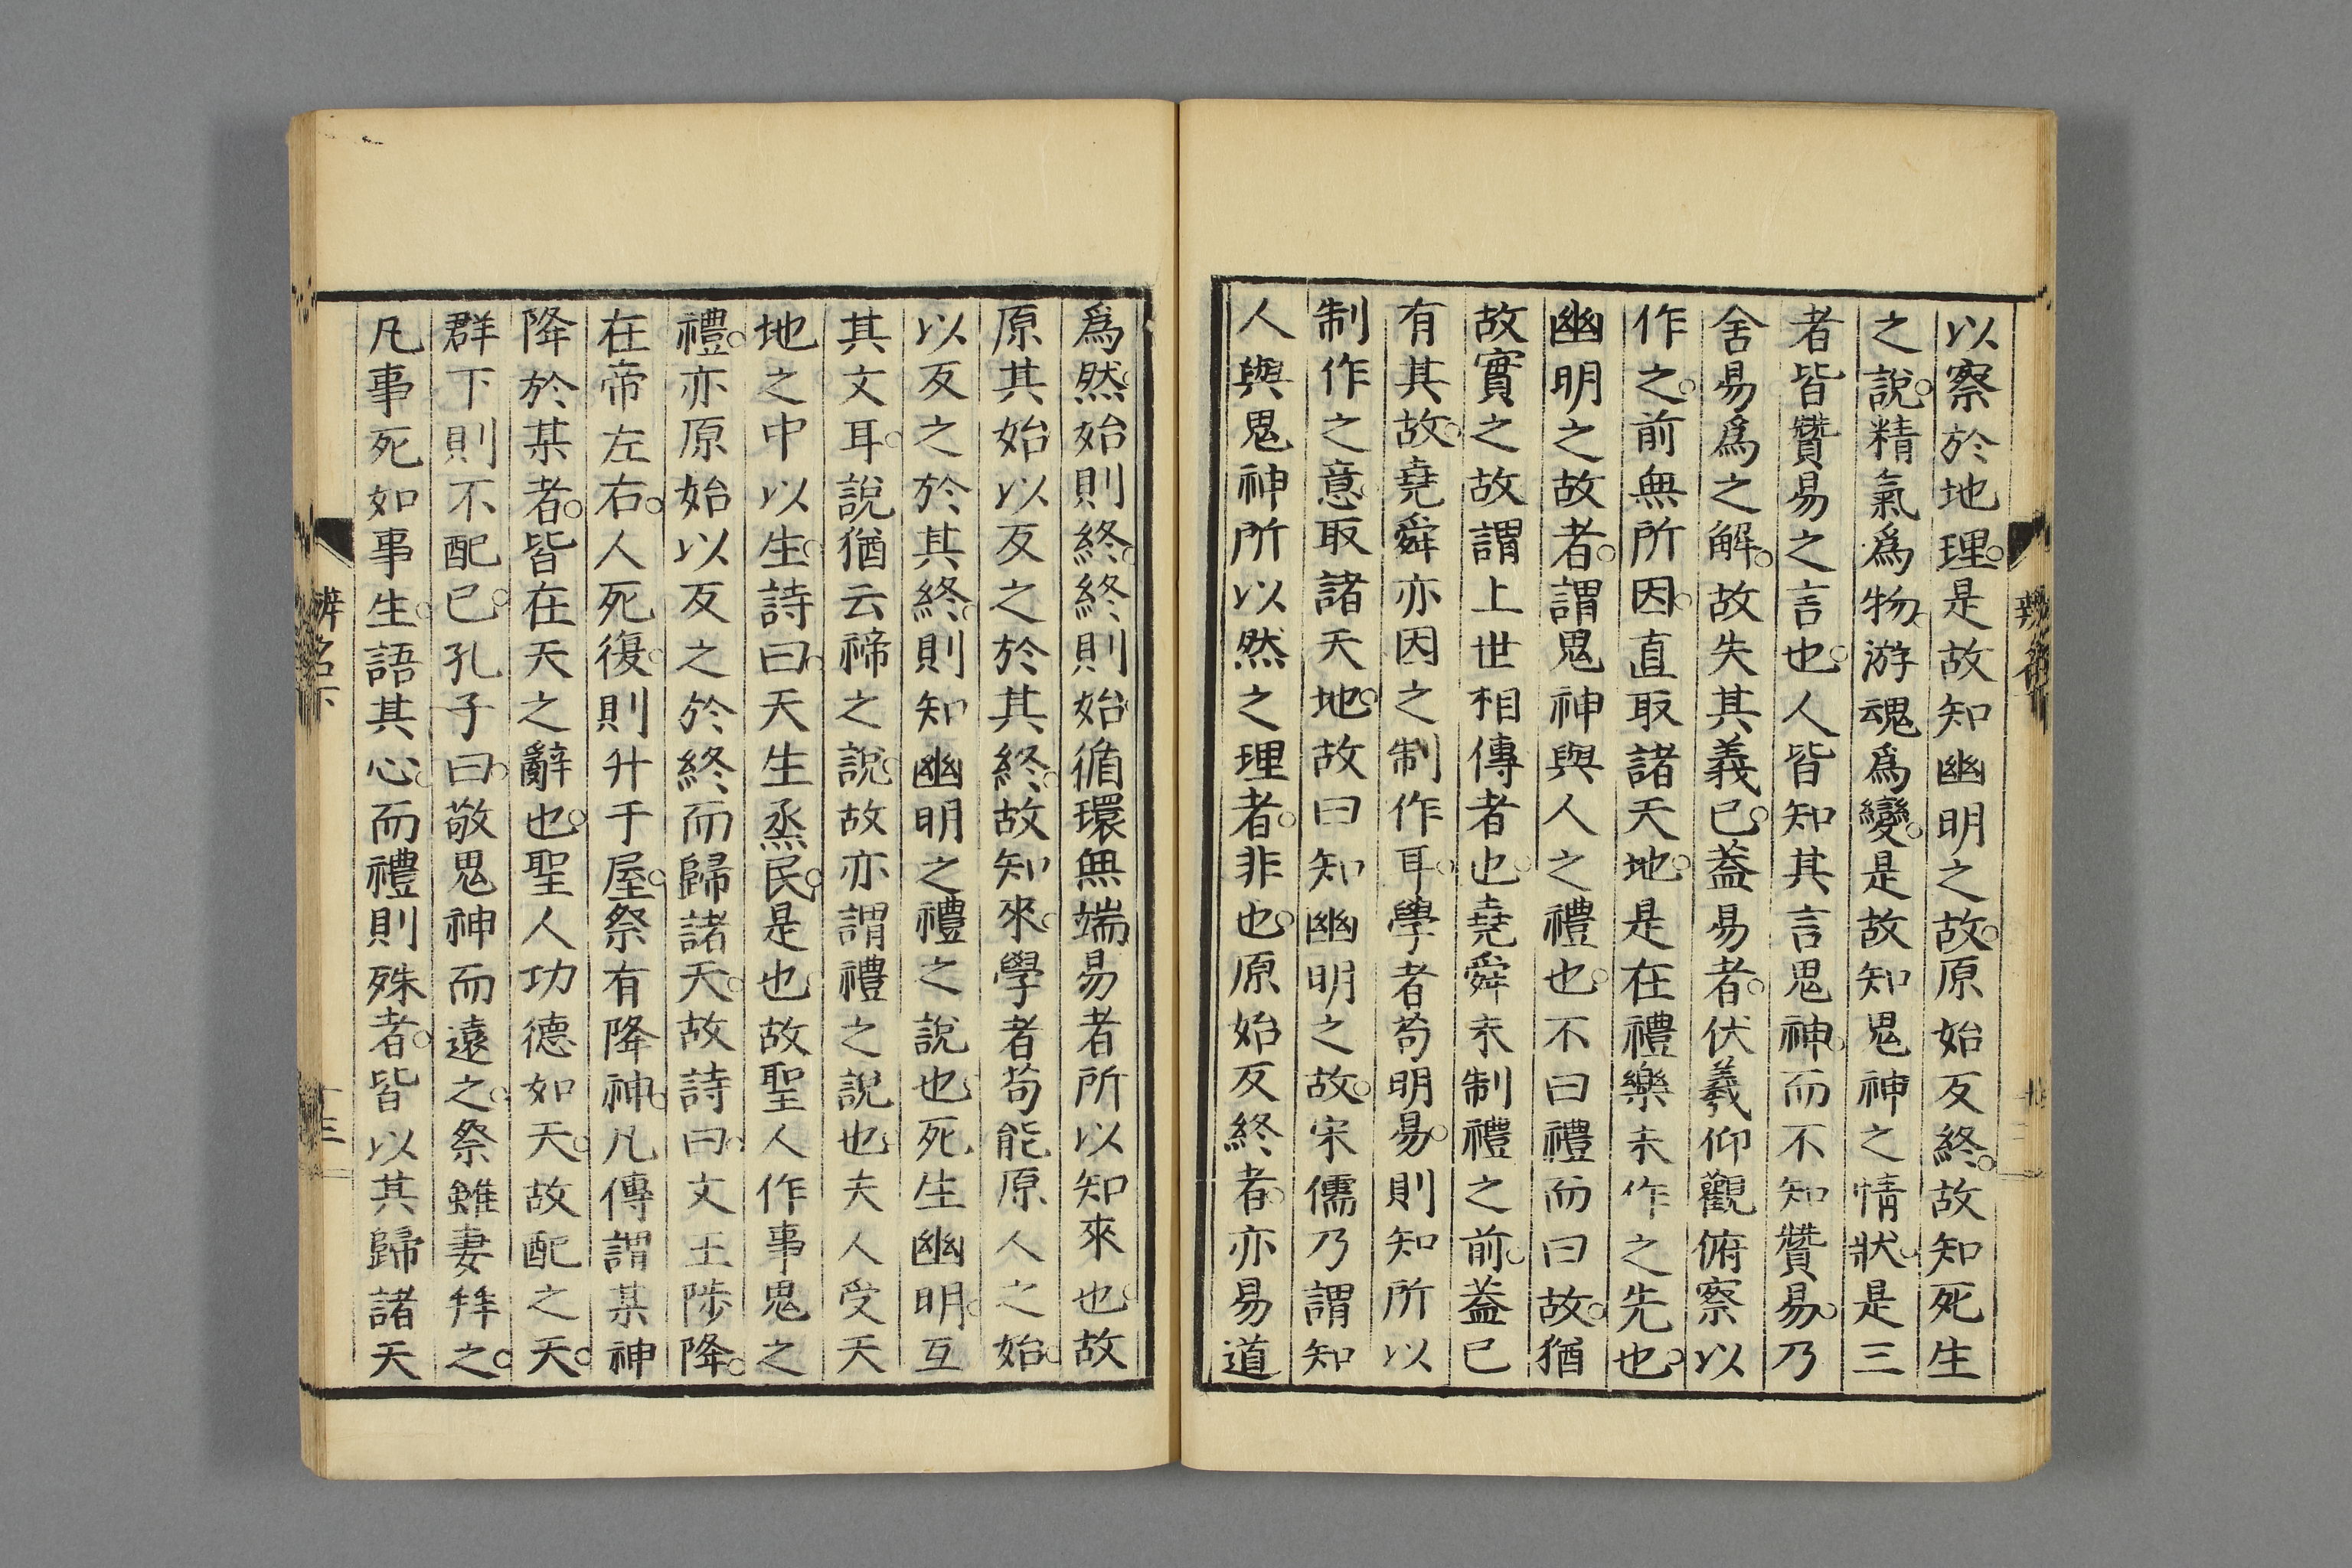 以察於地理。是故知幽明之故。原始反終。故知死生
之說。精氣爲物。游魂爲變。是故知鬼神之情狀。是三
者皆贊易之言也。人皆知其言鬼神。而不知贊易。乃
舍易爲之解。故失其義已。蓋易者。伏羲仰觀俯察以
作之。前無所因。直取諸天地。是在禮樂未作之先也。
幽明之故者。謂鬼神與人之禮也。不曰禮而曰故。猶
故實之故謂上世相傳者也。堯舜未制禮之前。蓋已
有其故。堯舜亦因之制作耳。學者苟明易。則知所以
制作之意取諸天地。故曰知幽明之故。宋儒乃謂知
人與鬼神所以然之理者。非也。原始反終者。亦易道
爲然。始則終。終則始。循環無端。易者所以知來也。故
原其始以反之於其終。故知來。學者苟能原人之始。
以反之於其終。則知幽明之禮之說也。死生幽明。互
其文耳。說猶云禘之說。故亦謂禮之說也。夫人受天
地之中以生。詩曰。天生烝民。是也。故聖人作事鬼之
禮。亦原始以反之於終而歸諸天。故詩曰。文王陟降。
在帝左右。人死復。則升于屋。祭有降神。凡傳謂某神
降於某者。皆在天之辭也。聖人功德如天。故配之天。
群下則不配已。孔子曰。敬鬼神而遠之。祭雖妻拜之。
凡事死如事生。語其心。而禮則殊者。皆以其歸諸天
辨名下
十三